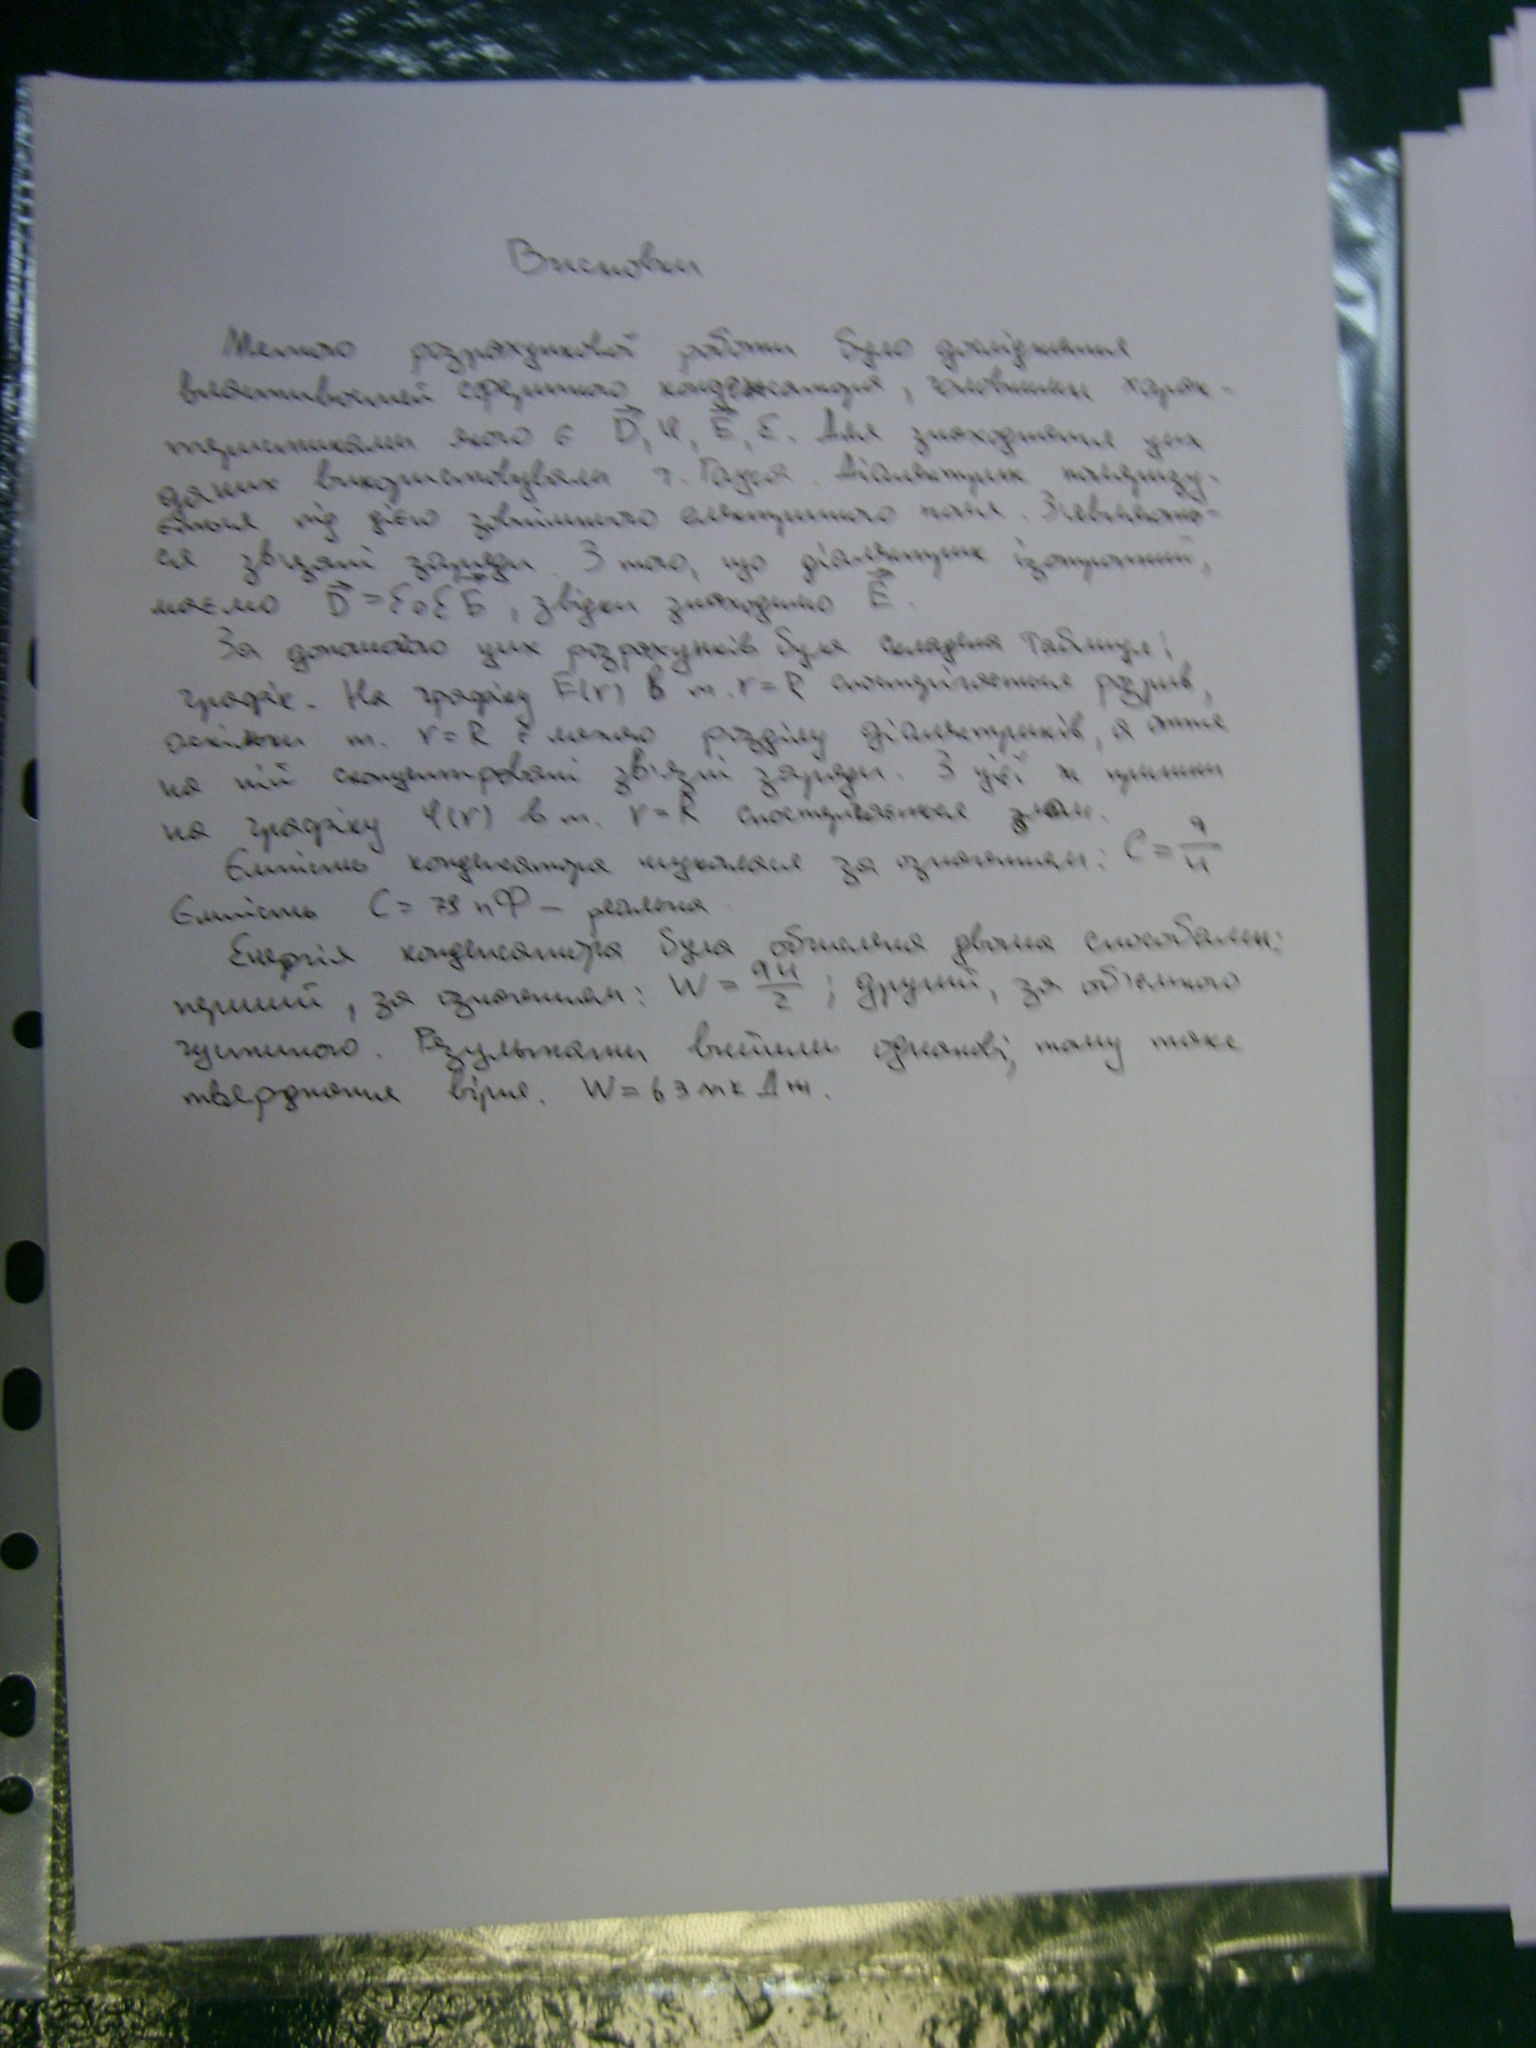 Висновки
Метою розрахункової роботи було дослідження
властивостей сферичного конденсатора, головними харак-
теристиками якого є D⃗, φ, E⃗, ε. Для знаходження цих
даних використовували т. Гауса. Діелектрик поляризу-
ється під дією зовнішнього електричного поля. З'являють-
ся зв'язані заряди. З того, що діелектрик ізотропний,
маємо D⃗ = ε₀εE⃗, звідки знаходимо E⃗.
За допомогою цих розрахунків була складена таблиця і
графік. На графіку E(r) в т. r=R спостерігається розрив,
оскільки т. r=R є межею розділу діелектриків, а отже
на ній сконцентровані зв'язні заряди. З цієї ж причини
на графіку φ(r) в т. r=R спостерігається злам.
Ємність конденсатора шукалася за означенням: C = q/U
Ємність C = 79 пФ – реальна.
Енергія конденсатора була обчислена двома способами:
перший, за означенням: W = qU/2; другий, за об'ємною
густиною. Результати вийшли однакові, тому таке
твердження вірне. W = 63 мкДж.